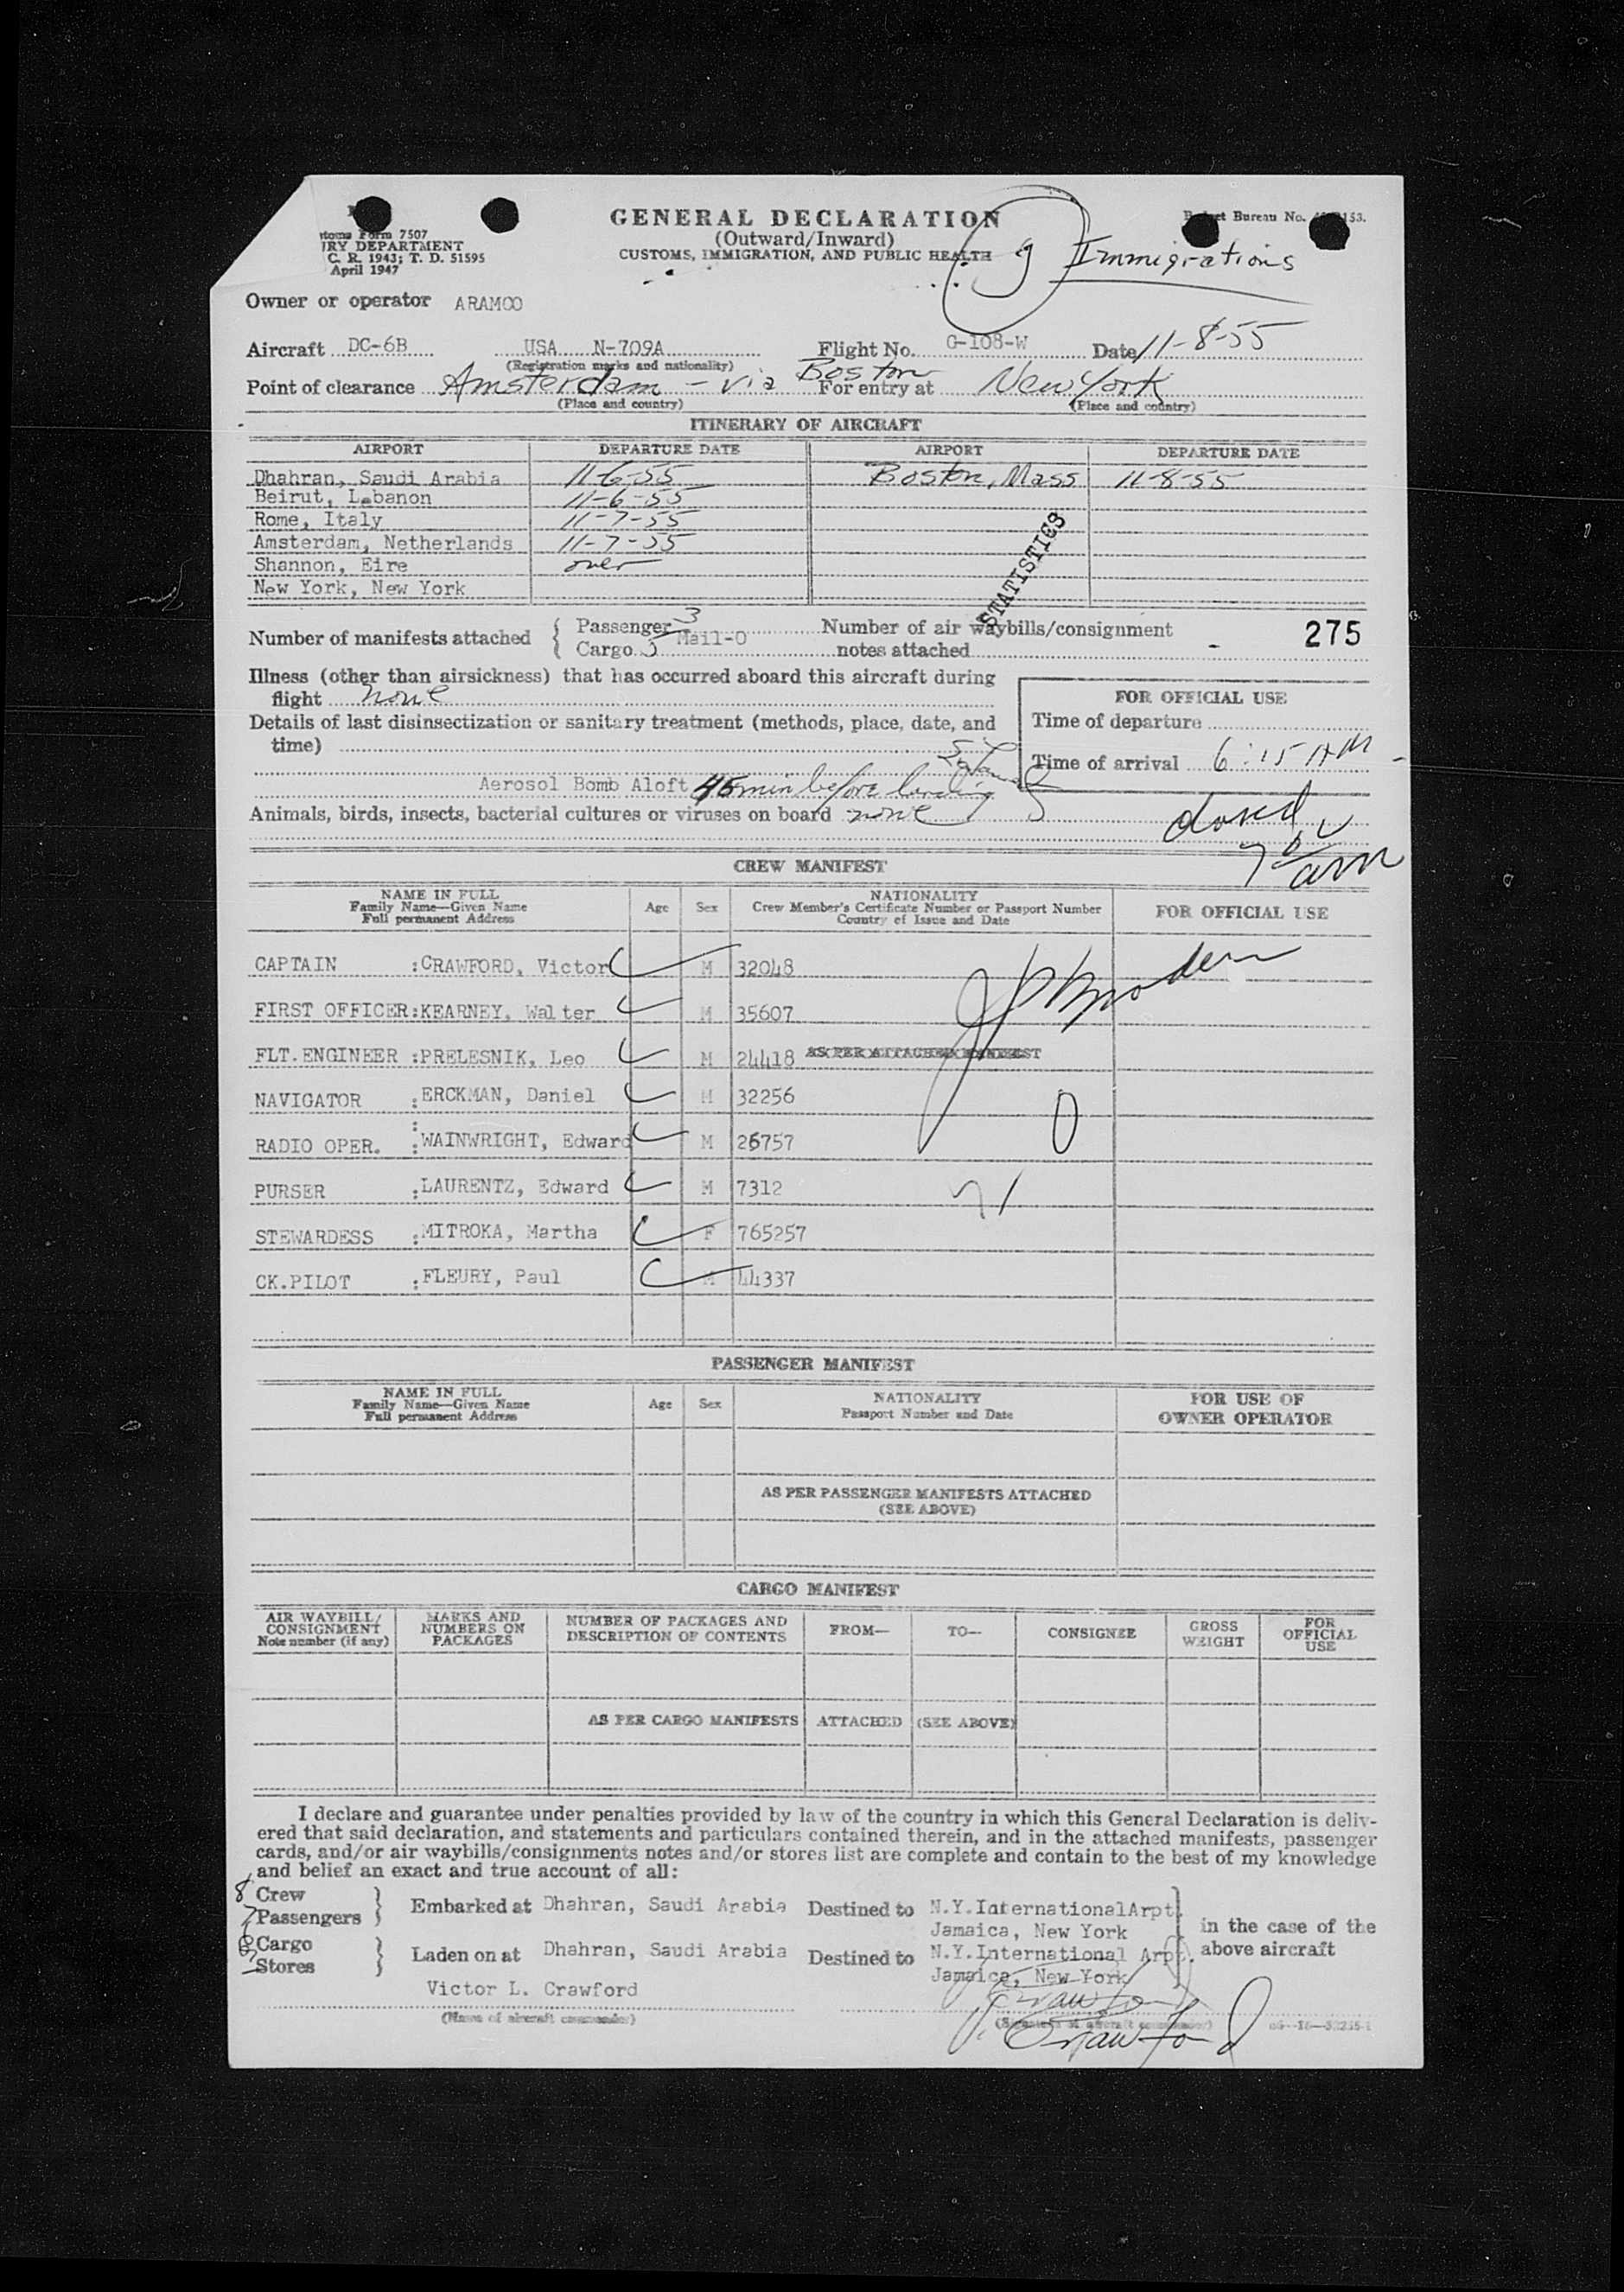 GENERAL DECLARATION
(Outward/Inward)
CUSTOMS, IMMIGRATION, AND PUBLIC HEALTH
Form 7507
RY DEPARTMENT
C. R. 1943; T. D. 51595
April 1947
Bureau No.
153.
Immigrations
Owner or operator ARAMCO
Aircraft DC-6B USA N-709A Flight No. G-108-W Date 11-8-55
(Registration marks and nationality)
Point of clearance Amsterdam - via Boston For entry at New York
(Place and country) (Place and country)
ITINERARY OF AIRCRAFT
AIRPORT DEPARTURE DATE AIRPORT DEPARTURE DATE
Dhahran, Saudi Arabia 11-6-55 Boston, Mass 11-8-55
Beirut, Lebanon 11-6-55
Rome, Italy 11-7-55
Amsterdam, Netherlands 11-7-55
Shannon, Eire over
New York, New York
STATISTICS
Number of manifests attached { Passenger 3 Number of air waybills/consignment
Cargo Mail-0 notes attached -
275
Illness (other than airsickness) that has occurred aboard this aircraft during
flight none
Details of last disinsectization or sanitary treatment (methods, place, date, and
time)
Aerosol Bomb Aloft 45 min before landing
Animals, birds, insects, bacterial cultures or viruses on board none
FOR OFFICIAL USE
Time of departure
Time of arrival 6:15 AM
CREW MANIFEST
NAME IN FULL
Family Name—Given Name
Full permanent Address
Age Sex
NATIONALITY
Crew Member's Certificate Number or Passport Number
Country of Issue and Date
FOR OFFICIAL USE
CAPTAIN :CRAWFORD, Victor M 32048
FIRST OFFICER:KEARNEY, Walter M 35607
FLT.ENGINEER :PRELESNIK, Leo M 24418 AS PER ATTACHED MANIFEST
NAVIGATOR :ERCKMAN, Daniel M 32256
RADIO OPER. :WAINWRIGHT, Edward M 26757
PURSER :LAURENTZ, Edward M 7312
STEWARDESS :MITROKA, Martha F 765257
CK.PILOT :FLEURY, Paul M 44337
PASSENGER MANIFEST
NAME IN FULL
Family Name—Given Name
Full permanent Address
Age Sex
NATIONALITY
Passport Number and Date
FOR USE OF
OWNER OPERATOR
AS PER PASSENGER MANIFESTS ATTACHED
(SEE ABOVE)
CARGO MANIFEST
AIR WAYBILL/
CONSIGNMENT
Note number (if any)
MARKS AND
NUMBERS ON
PACKAGES
NUMBER OF PACKAGES AND
DESCRIPTION OF CONTENTS
FROM— TO— CONSIGNEE
GROSS
WEIGHT
FOR
OFFICIAL
USE
AS PER CARGO MANIFESTS ATTACHED (SEE ABOVE)
I declare and guarantee under penalties provided by law of the country in which this General Declaration is deliv-
ered that said declaration, and statements and particulars contained therein, and in the attached manifests, passenger
cards, and/or air waybills/consignments notes and/or stores list are complete and contain to the best of my knowledge
and belief an exact and true account of all:
8 Crew
Passengers } Embarked at Dhahran, Saudi Arabia Destined to N.Y.InternationalArpt.
Jamaica, New York
Cargo
Stores } Laden on at Dhahran, Saudi Arabia Destined to N.Y.International Arpt.
Jamaica, New York
in the case of the
above aircraft
Victor L. Crawford
(Name of aircraft commander)
(Signature of aircraft commander)
Crawford